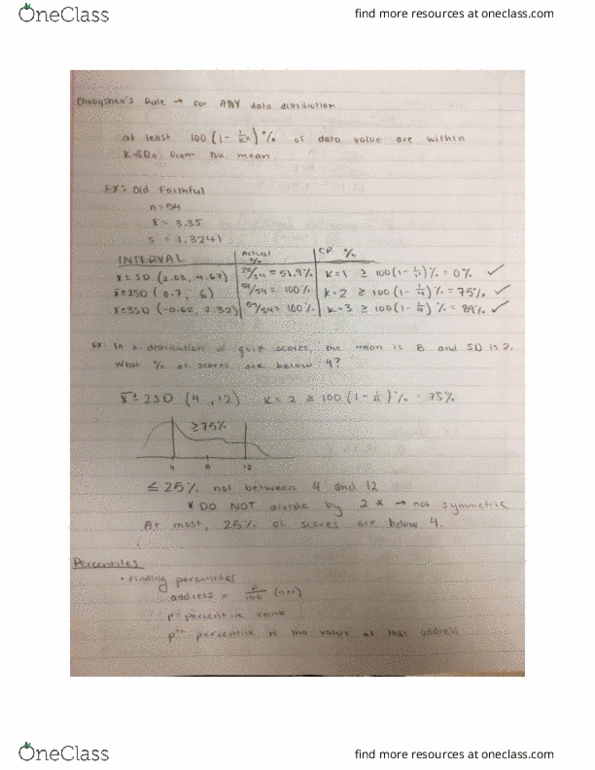 OneClass
find more resources at oneclass.com
Chebyshev's Rule → for ANY data distribution
at least 100(1 - 1/k²)% of data value are within
k SDs from the mean
EX: Old Faithful
n=54
x̄ = 3.35
s = 1.3241
INTERVAL Actual % CR %
x̄ ± SD (2.03, 4.67) 28/54 = 51.9% k=1 ≥ 100(1- 1/1)% = 0% ✓
x̄ ± 2SD (0.7, 6) 54/54 = 100% k=2 ≥ 100(1- 1/4)% = 75% ✓
x̄ ± 3SD (-0.62, 7.32) 54/54 = 100% k=3 ≥ 100(1- 1/9)% = 89% ✓
Ex: In a distribution of quiz scores, the mean is 8 and SD is 2.
What % of scores are below 4?
x̄ ± 2SD (4, 12) k=2 ≥ 100(1- 1/4)% = 75%
≥75%
4 8 12
≤ 25% not between 4 and 12
* DO NOT divide by 2 * → not symmetric
At most, 25% of scores are below 4.
Percentiles
• Finding percentiles
address = P/100 (n+1)
p = percentile rank
pth percentile is the value at that address
OneClass
find more resources at oneclass.com